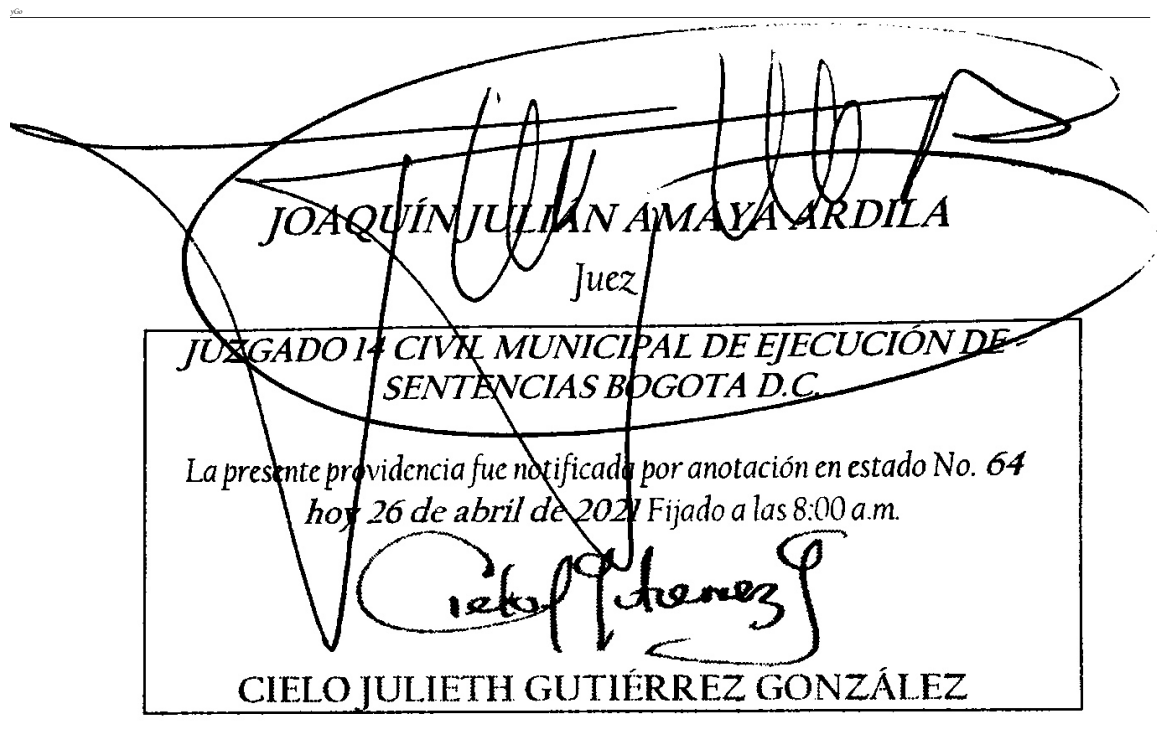 yGo
JOAQUÍN JULIÁN AMAYA ARDILA
Juez
JUZGADO 14 CIVIL MUNICIPAL DE EJECUCIÓN DE
SENTENCIAS BOGOTA D.C.
La presente providencia fue notificada por anotación en estado No. 64
hoy 26 de abril de 2021 Fijado a las 8:00 a.m.
Cielo Gutierrez G
CIELO JULIETH GUTIÉRREZ GONZÁLEZ